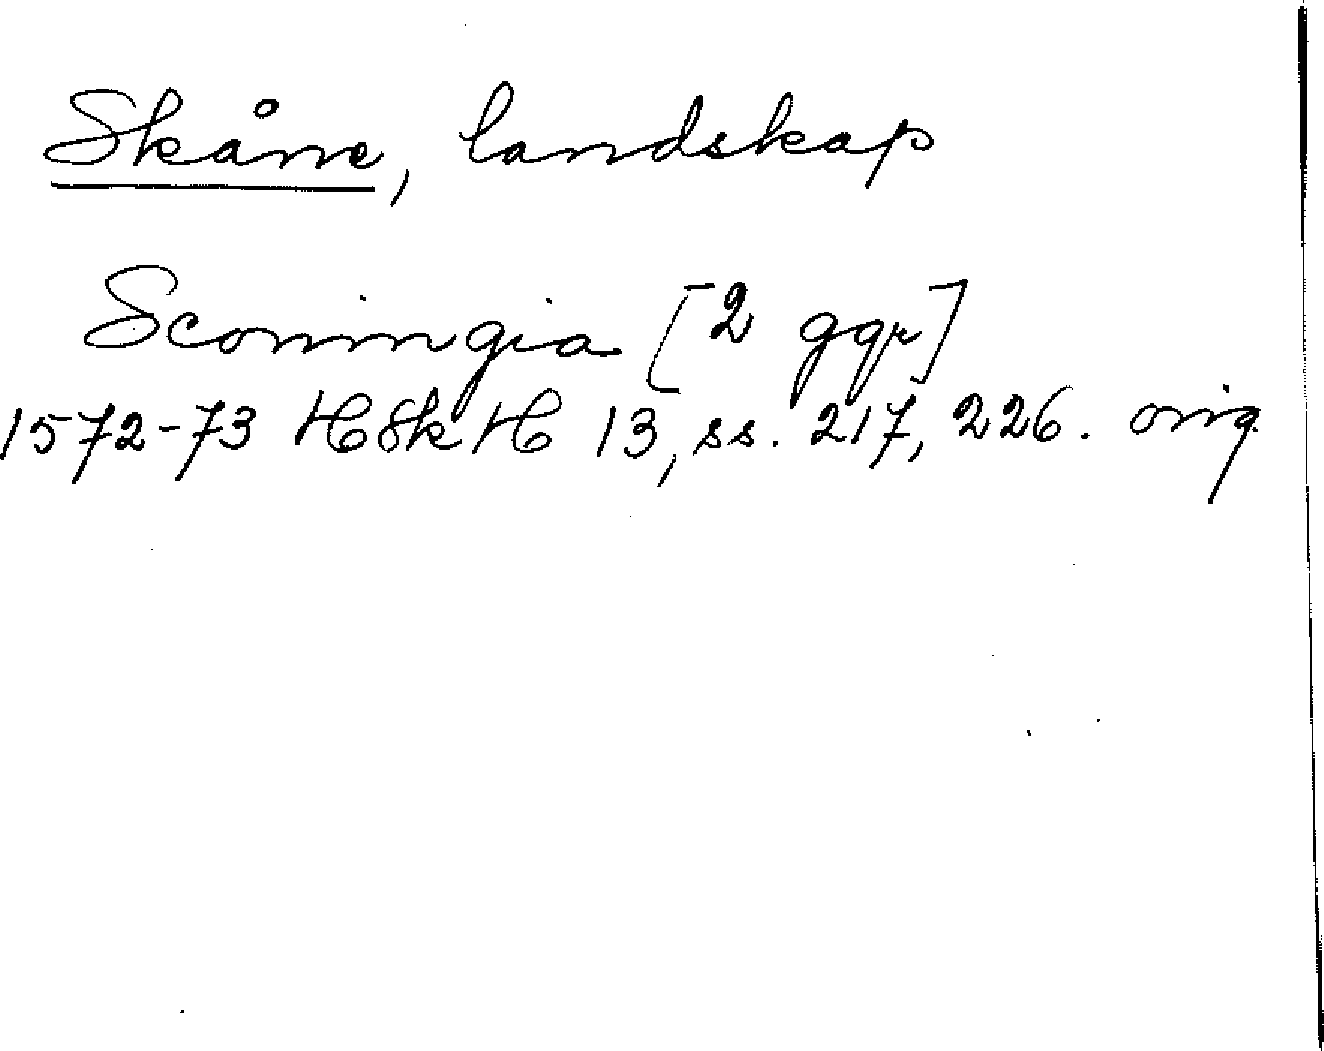 Skåne, landskap
Sconingia [2 ggr]
1572-73 HSkH 13, ss. 217, 226. orig.